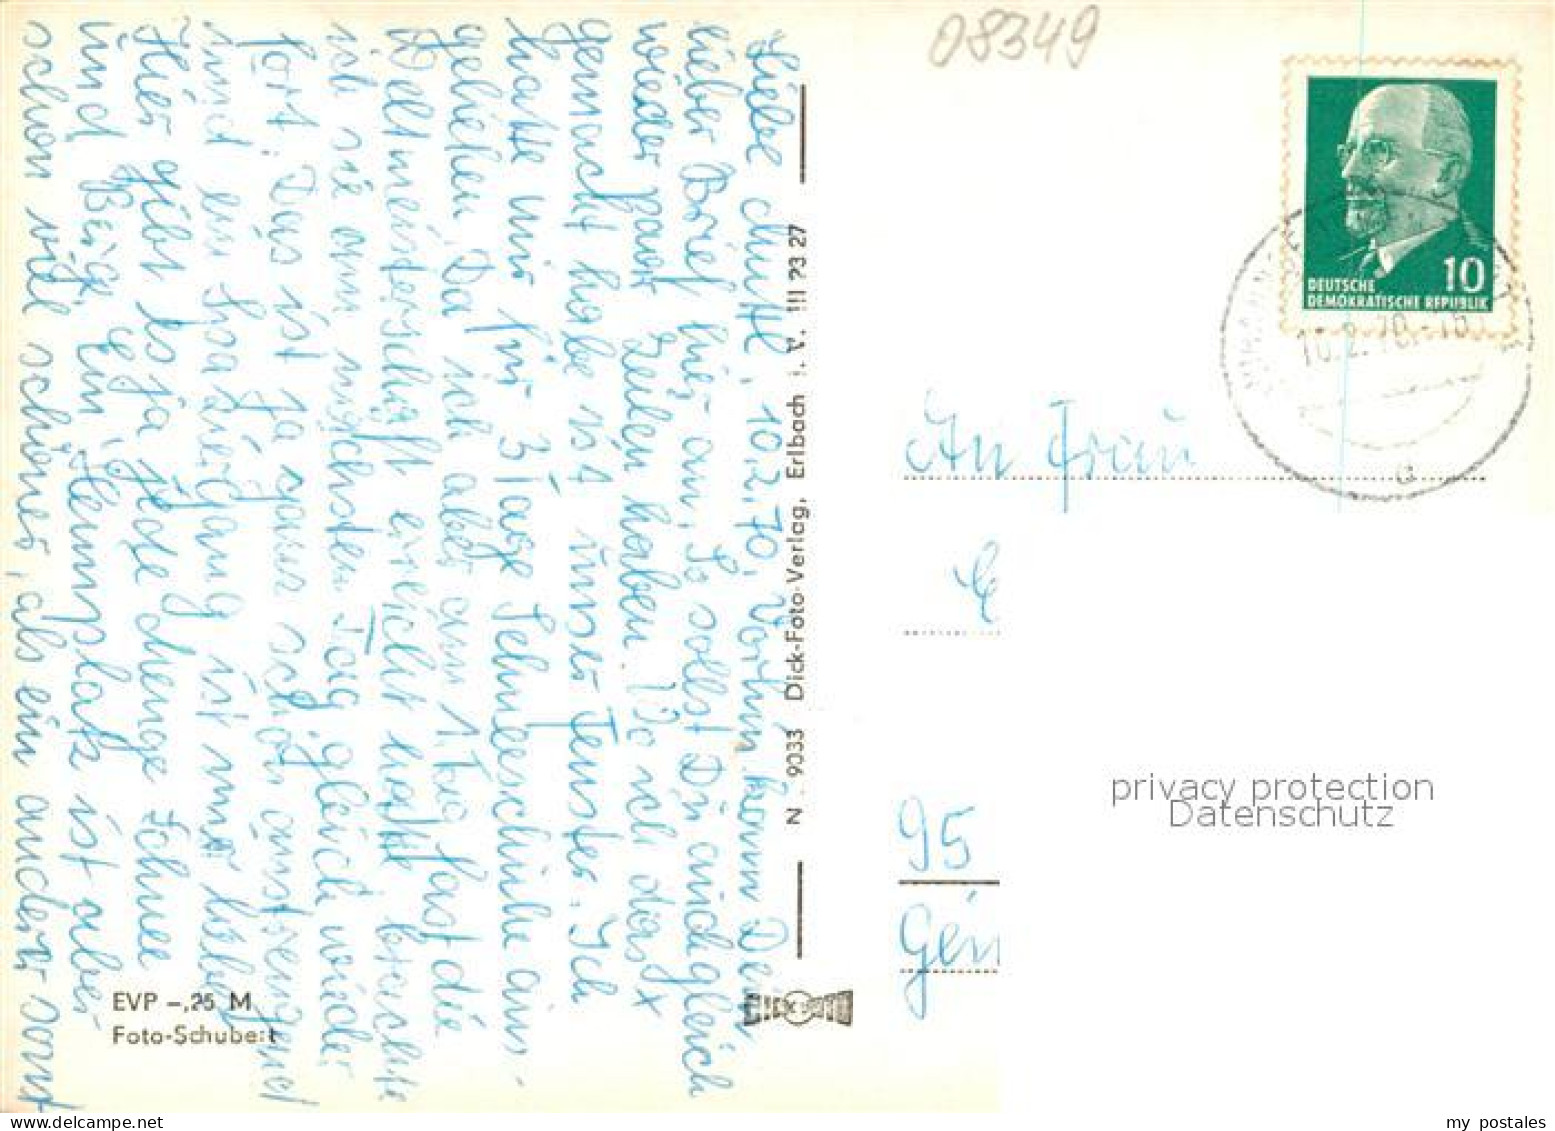 08349
Liebe Mutti, 10.2.70, Vorhin kam Dein
lieber Brief hier an. So sollst Du auch gleich
wieder paar Zeilen haben. Wo ich das x
gemacht habe ist unser Fenster. Ich
hatte mir für 3 Tage Schneeschuhe aus-
geliehen. Da ich aber am 1. Tag fast die
Weltmeisterschaft erreicht hatte brachte
ich sie am nächsten Tag gleich wieder
fort. Das ist ja ganz schön anstrengend
und ein Spaziergang ist mir lieber
Hier gibt es ja jede Menge Schnee
und Berge, ein Rennplatz ist aber
schon viel schöner, als ein ander sonst
N 9033 Dick-Foto-Verlag, Erlbach i. V. III 23 27
DICK FOTO
EVP -,25 M
Foto-Schubert
DEUTSCHE
DEMOKRATISCHE REPUBLIK
10
10.2.70.-16
a
An Frau
95
privacy protection
Datenschutz
my postales